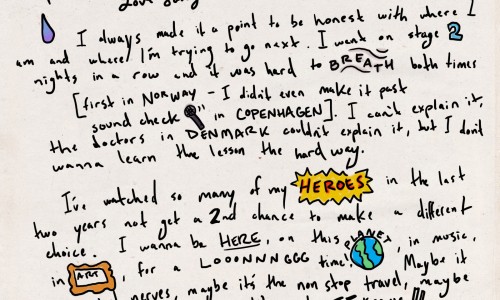 Love Song
I always made it a point to be honest with where I
am and where I'm trying to go next. I went on stage 2
nights in a row and it was hard to BREATH both times
[first in NORWAY - I didn't even make it past
sound check in COPENHAGEN]. I can't explain it,
the doctors in DENMARK couldn't explain it, but I don't
wanna learn the lesson the hard way.
I've watched so many of my HEROES in the last
two years not get a 2nd chance to make a different
choice. I wanna be HERE, on this PLANET, in music,
in ART for a LOOONNNGGG time! Maybe it
nerves, maybe it's the non stop travel, maybe